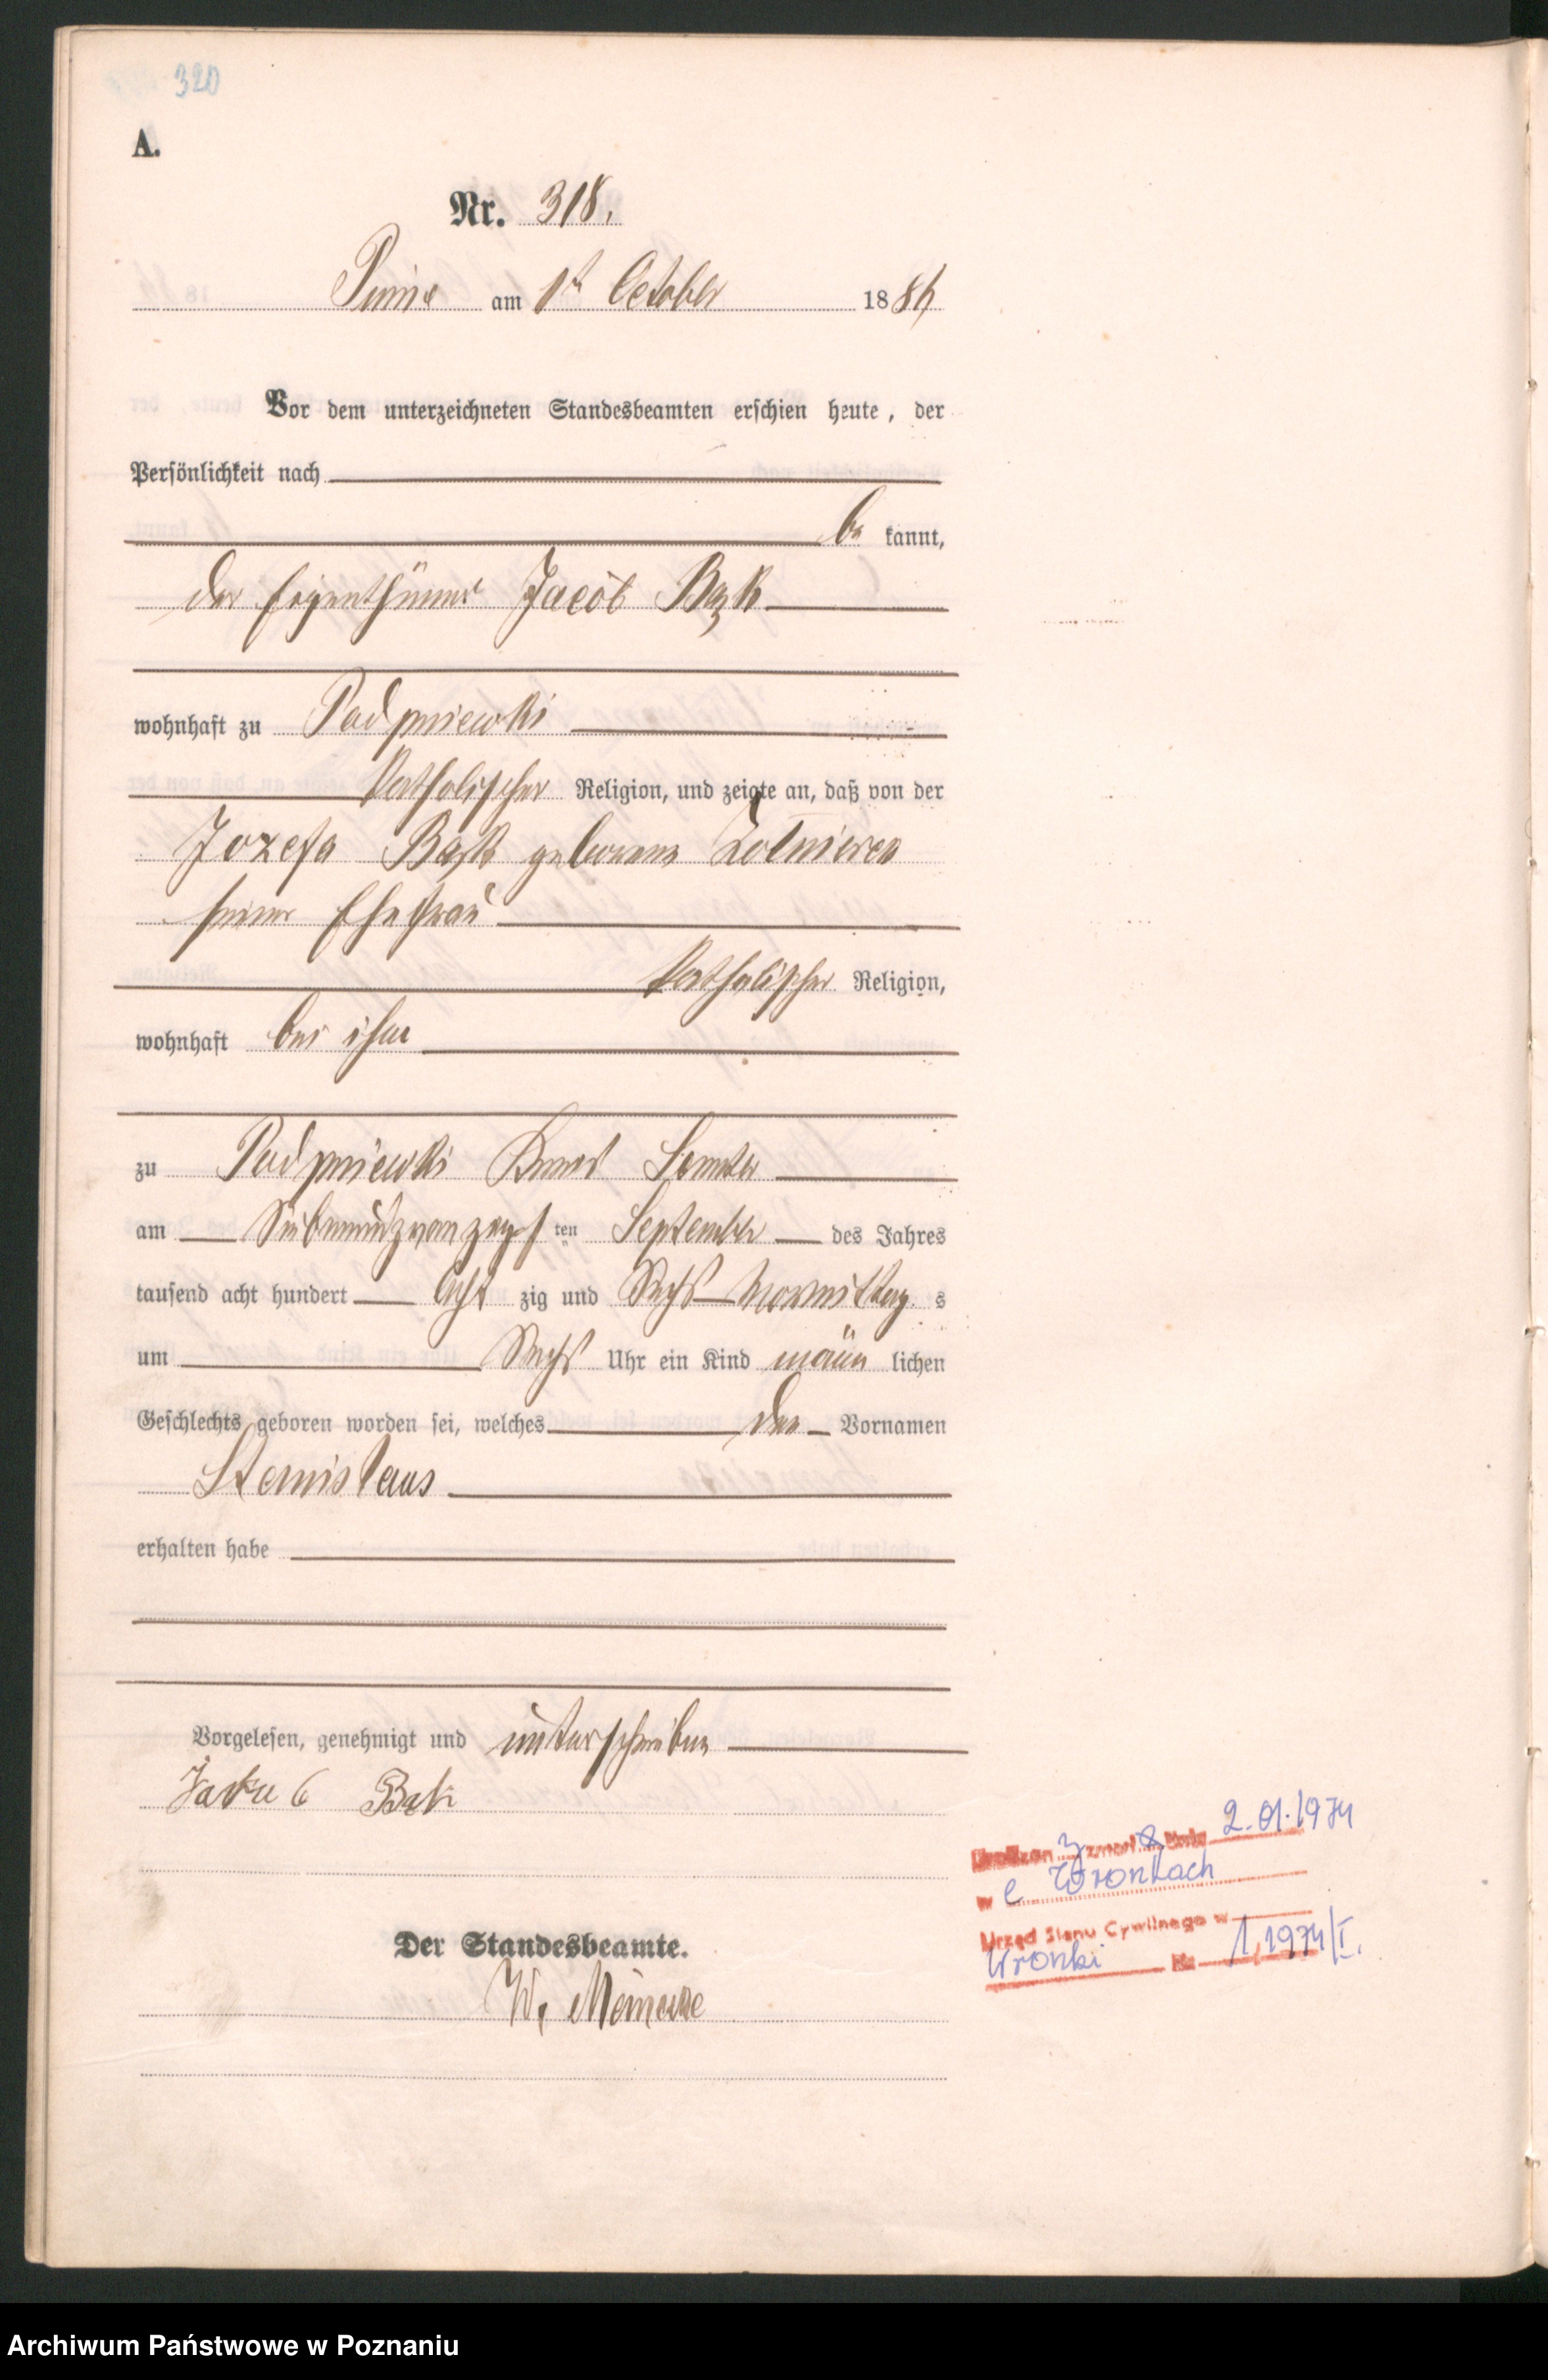 320
A.
Nr. 318.
Pinne am 1t October 1886
Vor dem unterzeichneten Standesbeamten erschien heute, der
Persönlichkeit nach
be kannt,
der Eigenthümer Jacob Bąk
wohnhaft zu Podpniewki
katholischer Religion, und zeigte an, daß von der
Jozefa Bąk geborene
seiner Ehefrau
katholischer Religion,
wohnhaft bei ihm
zu Podpniewki Kreis Samter
am Siebenundzwanzigsten September des Jahres
tausend acht hundert acht zig und Sechs Vormittag s
um Sechs Uhr ein Kind männ lichen
Geschlechts geboren worden sei, welches den Vornamen
Stanislaus
erhalten habe
Vorgelesen, genehmigt und unterschrieben
Jakub Bąk
2.01.1974
w Wronkach
Urząd Stanu Cywilnego w
Wronki Nr 1,1974/I.
Der Standesbeamte.
W. Meinecke
Archiwum Państwowe w Poznaniu